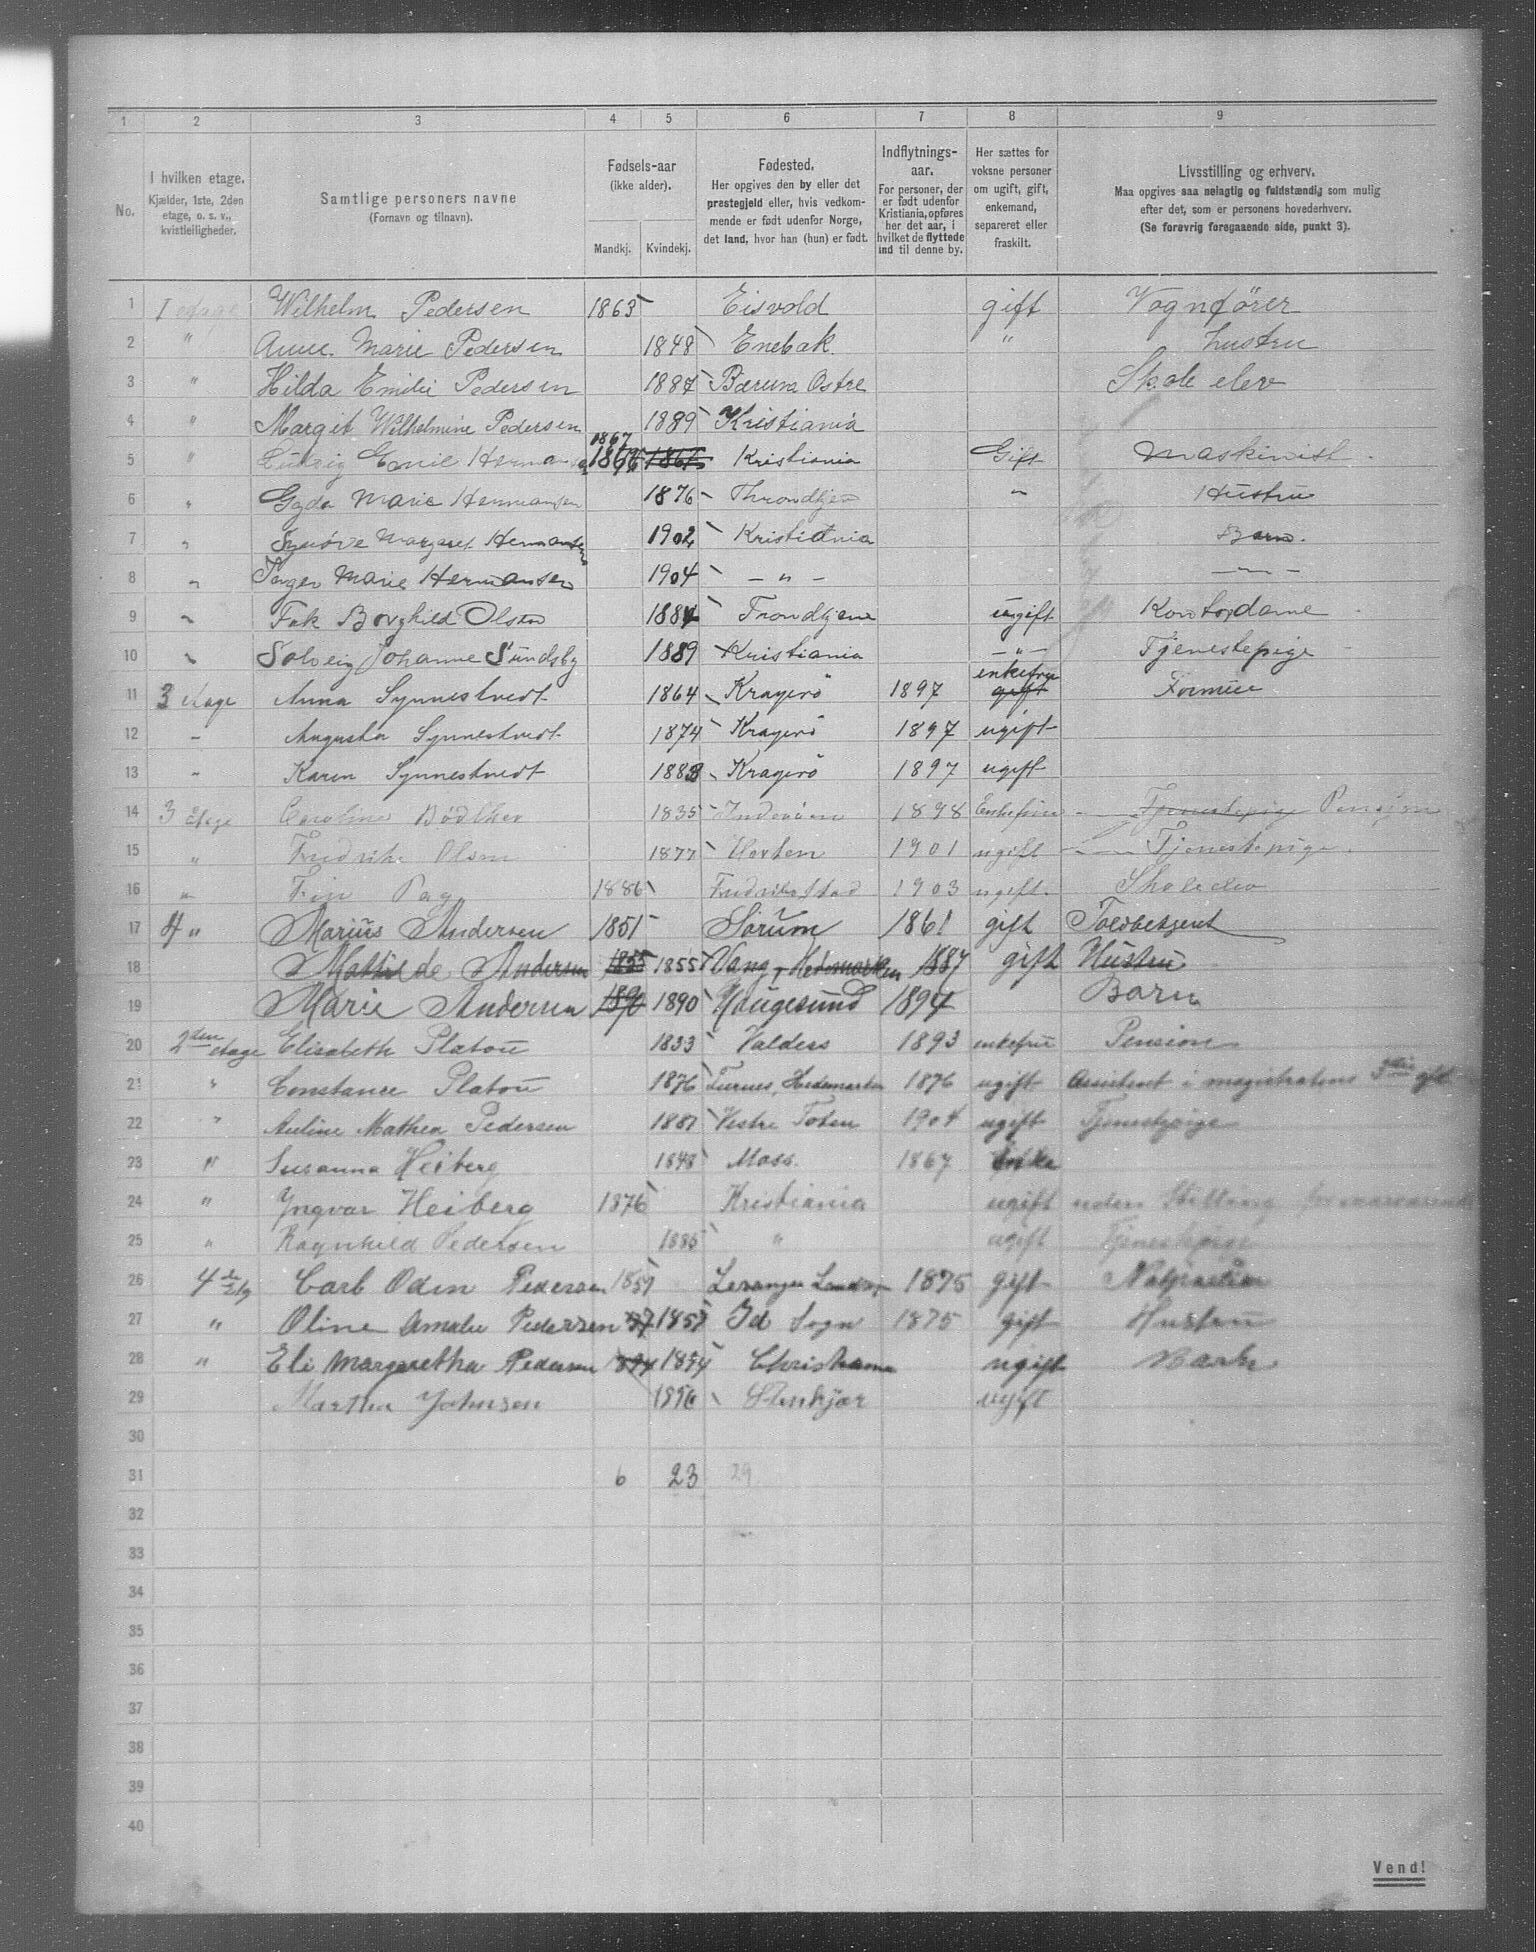 1 2 3 4 5 6 7 8 9
No.
I hvilken etage.
Kjælder, 1ste, 2den
etage, o. s. v.,
kvistleiligheder.
Samtlige personers navne
(Fornavn og tilnavn).
Fødsels-aar
(ikke alder).
Mandkj. Kvindekj.
Fødested.
Her opgives den by eller det
præstegjeld eller, hvis vedkom-
mende er født udenfor Norge,
det land, hvor han (hun) er født.
Indflytnings-
aar.
For personer, der
er født udenfor
Kristiania, opføres
her det aar, i
hvilket de flyttede
ind til denne by.
Her sættes for
voksne personer
om ugift, gift,
enkemand,
separeret eller
fraskilt.
Livsstilling og erhverv.
Maa opgives saa nøiagtig og fuldstændig som mulig
efter det, som er personens hovederhverv.
(Se forøvrig foregaaende side, punkt 3).
1 I etage Wilhelm Pedersen 1863 Eisvold gift Vognfører
2 " Anne Marie Pedersen 1848 Enebak " hustru
3 " Hilda Emilie Pedersen 1887 Bærum Østre Skole elev
4 " Margit Wilhelmine Pedersen 1889 Kristiania
1867
5 " Ludvig Emil Hermansen 1866 1867 Kristiania Gift Maskinist
6 " Gyda Marie Hermansen 1876 Throndhjem " Hustru
7 " Synøve Margaret Hermansen 1902 Kristiania Barn.
8 " Inger Marie Hermansen 1904 - " - - " -
9 " Frk Borghild Olsen 1884 Trondhjem ugift Kontordame
10 " Solveig Johanne Sundsby 1889 Kristiania - " - Tjenestepige
enkefru
11 3 etage Anna Synnestvedt 1864 Kragerö 1897 gift Formue
12 - Augusta Synnestvedt 1874 Kragerö 1897 ugift
13 - Karen Synnestvedt 1883 Kragerö 1897 ugift
14 3 Etage Caroline Bödtker 1835 Inderøen 1898 Enkefrue Tjenestepige Pension
15 " Fredrikke Olsen 1877 Horten 1901 ugift Tjenestepige.
16 " Finn 1886 Fredrikstad 1903 ugift. Skoleelev
17 4 " Marius Andersen 1851 Sørum 1861 gift Toldbetjent
18 Mathilde Andersen 1855 1855 Vang, Hedemarken 1887 gift Hustru
19 Marie Andersen 1890 1890 Haugesund 1894 Barn
20 2den etage Elisabeth Platou 1833 Valders 1893 enkefru Pension
21 " Constance Platou 1876 Hedemarken 1876 ugift Assistent i magistratens 3die afd.
22 " Auline Mathea Pedersen 1881 Vestre Toten 1904 ugift Tjenestepige
23 " Susanna Heiberg 1848 Moss. 1867 Enke
24 " Yngvar Heiberg 1876 Kristiania ugift uden Stilling
25 " Ragnhild Pedersen 1885 " ugift Tjenestepige
26 4de Etg Carl Odin Pedersen 1857 Levanger Landsogn 1875 gift
27 " Oline Amalie Pedersen 57 1857 Id Sogn 1875 gift Hustru
28 " Eli Margaretha Pedersen 1894 1894 Christiania ugift Barn
29 Martha Johnsen Stenkjær ugift
30
31 6 23 29
32
33
34
35
36
37
38
39
40
Vend!